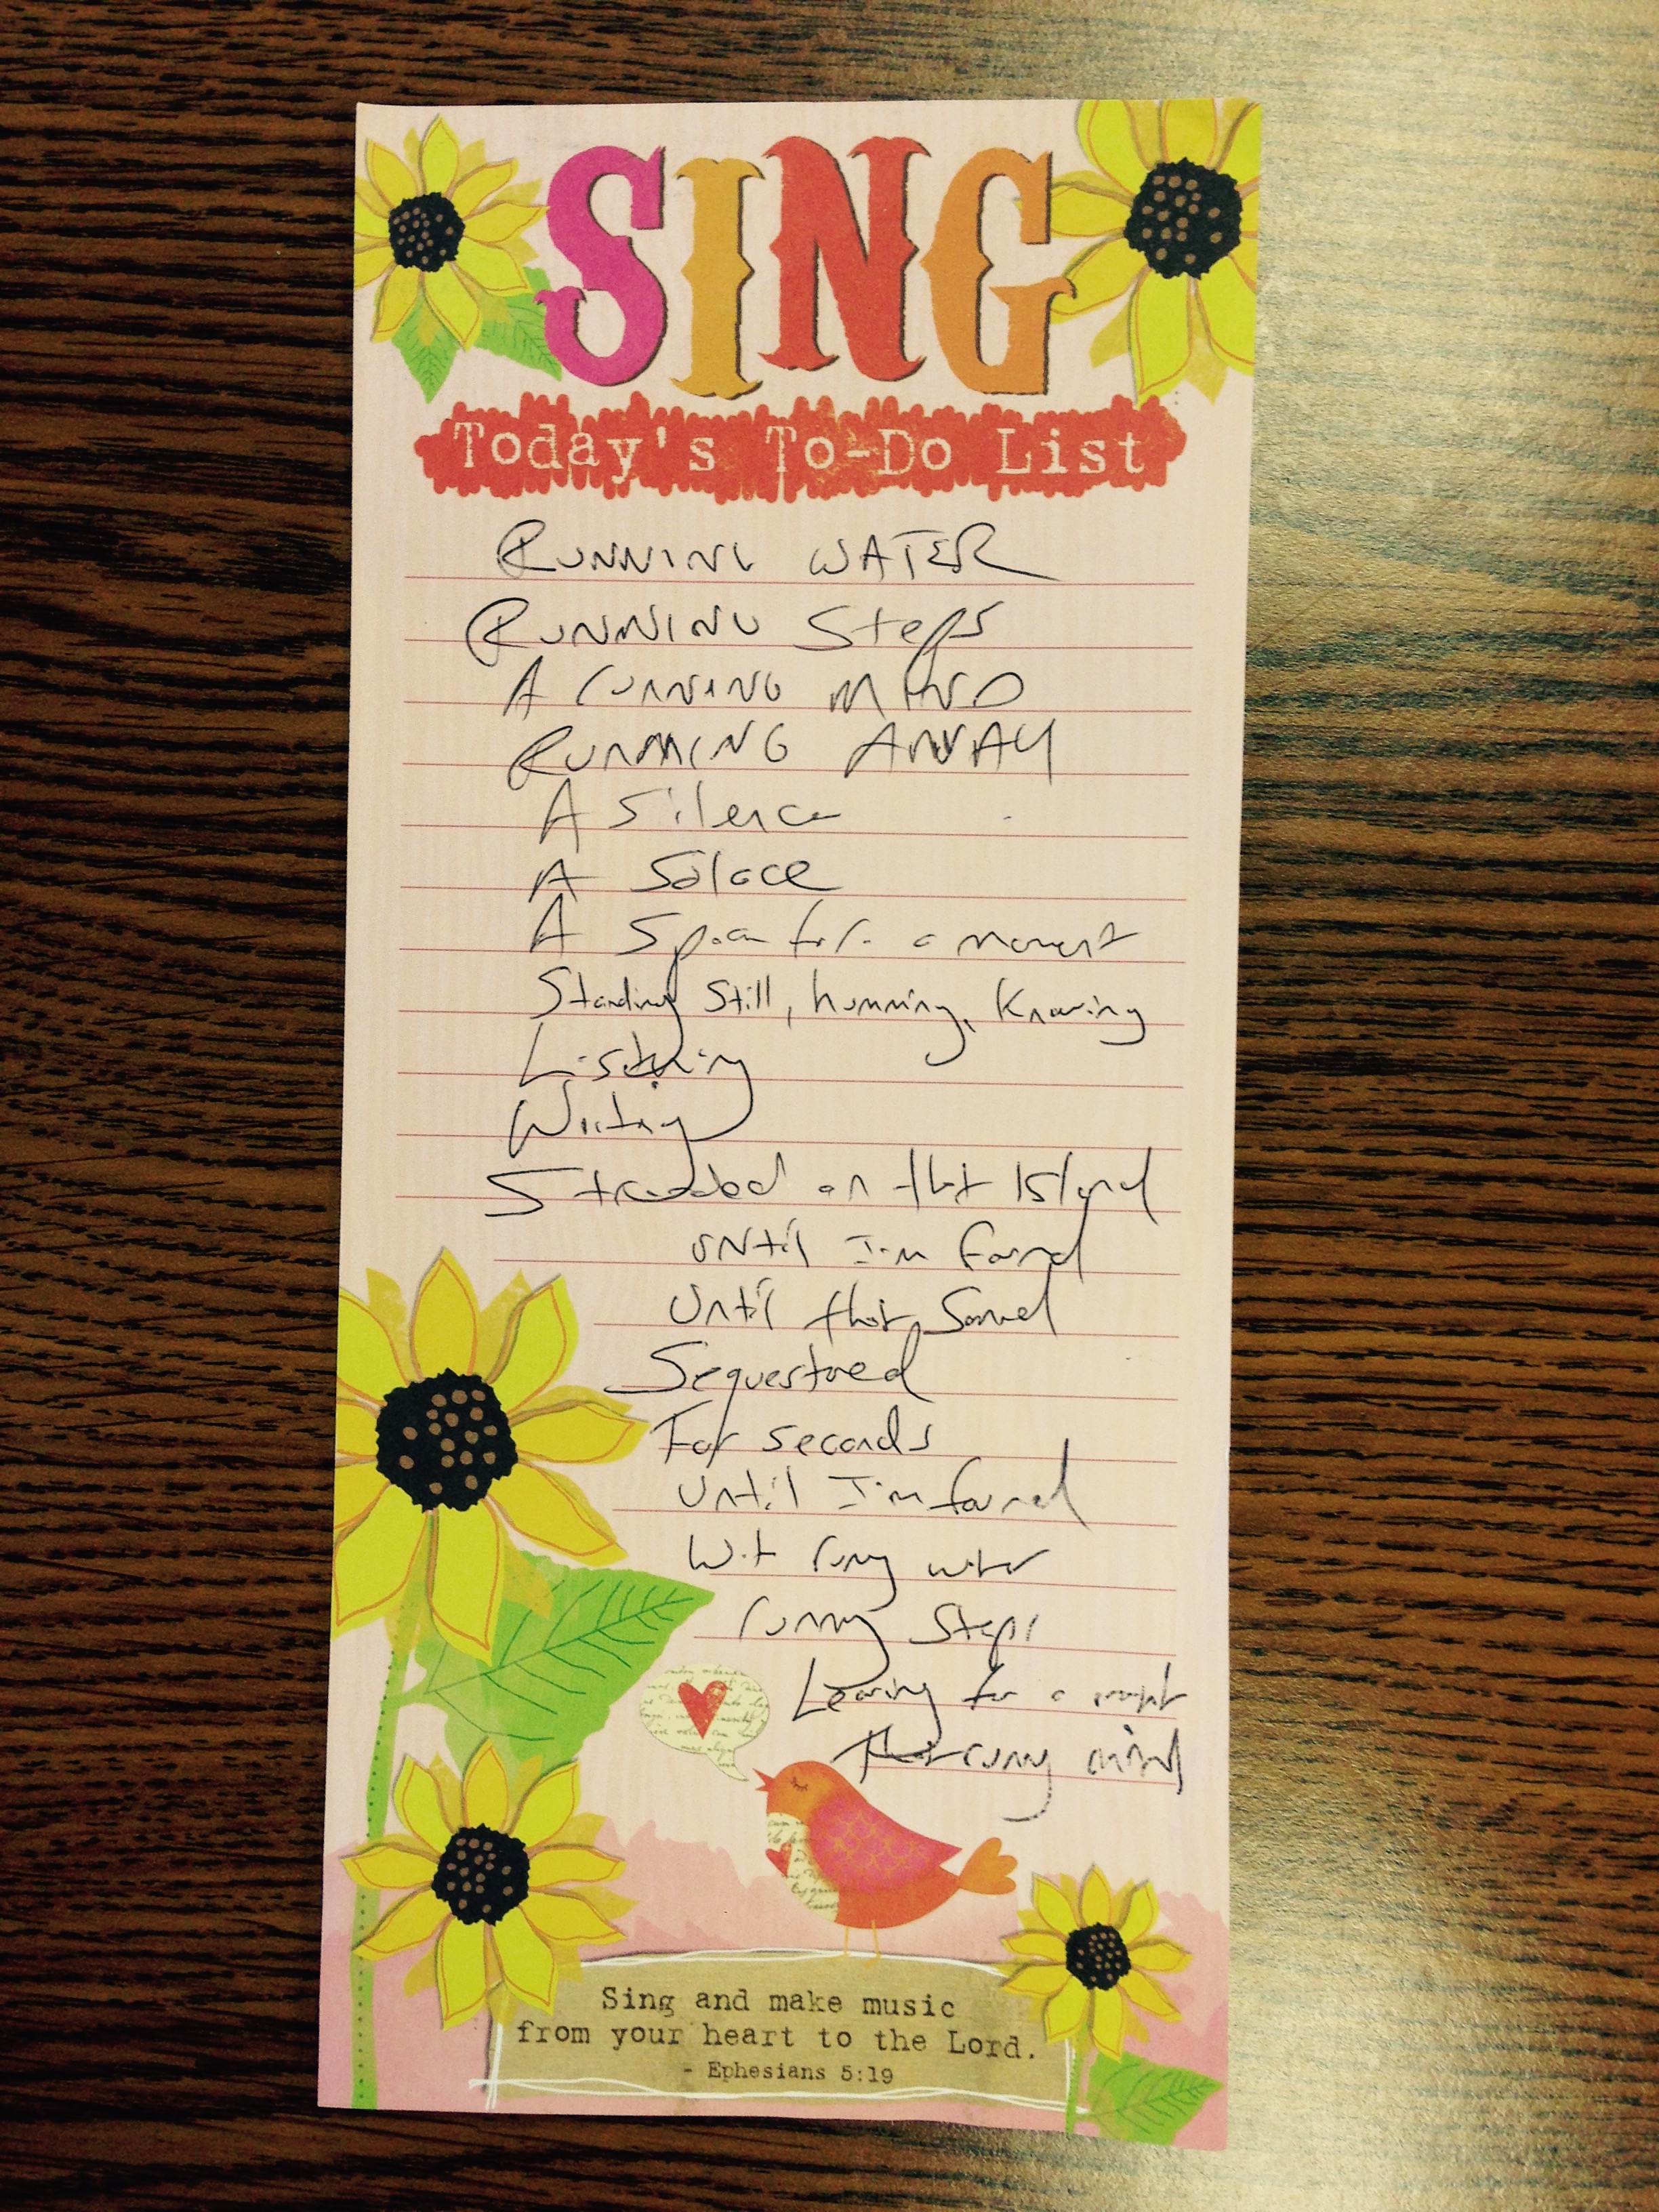 SING
Today's To-Do List
RUNNING WATER
RUNNING Steps
A running MIND
RUNNING AWAY
A Silence
A Solace
A for a moment
Standing Still, humming, Knowing
Listening
Writing
Stranded on that Island
UNtil I'm found
Until that Sound
Sequestered
For seconds
Until I'm found
running water
running Steps
Leaving for a moment
That running mind
Sing and make music
from your heart to the Lord.
- Ephesians 5:19